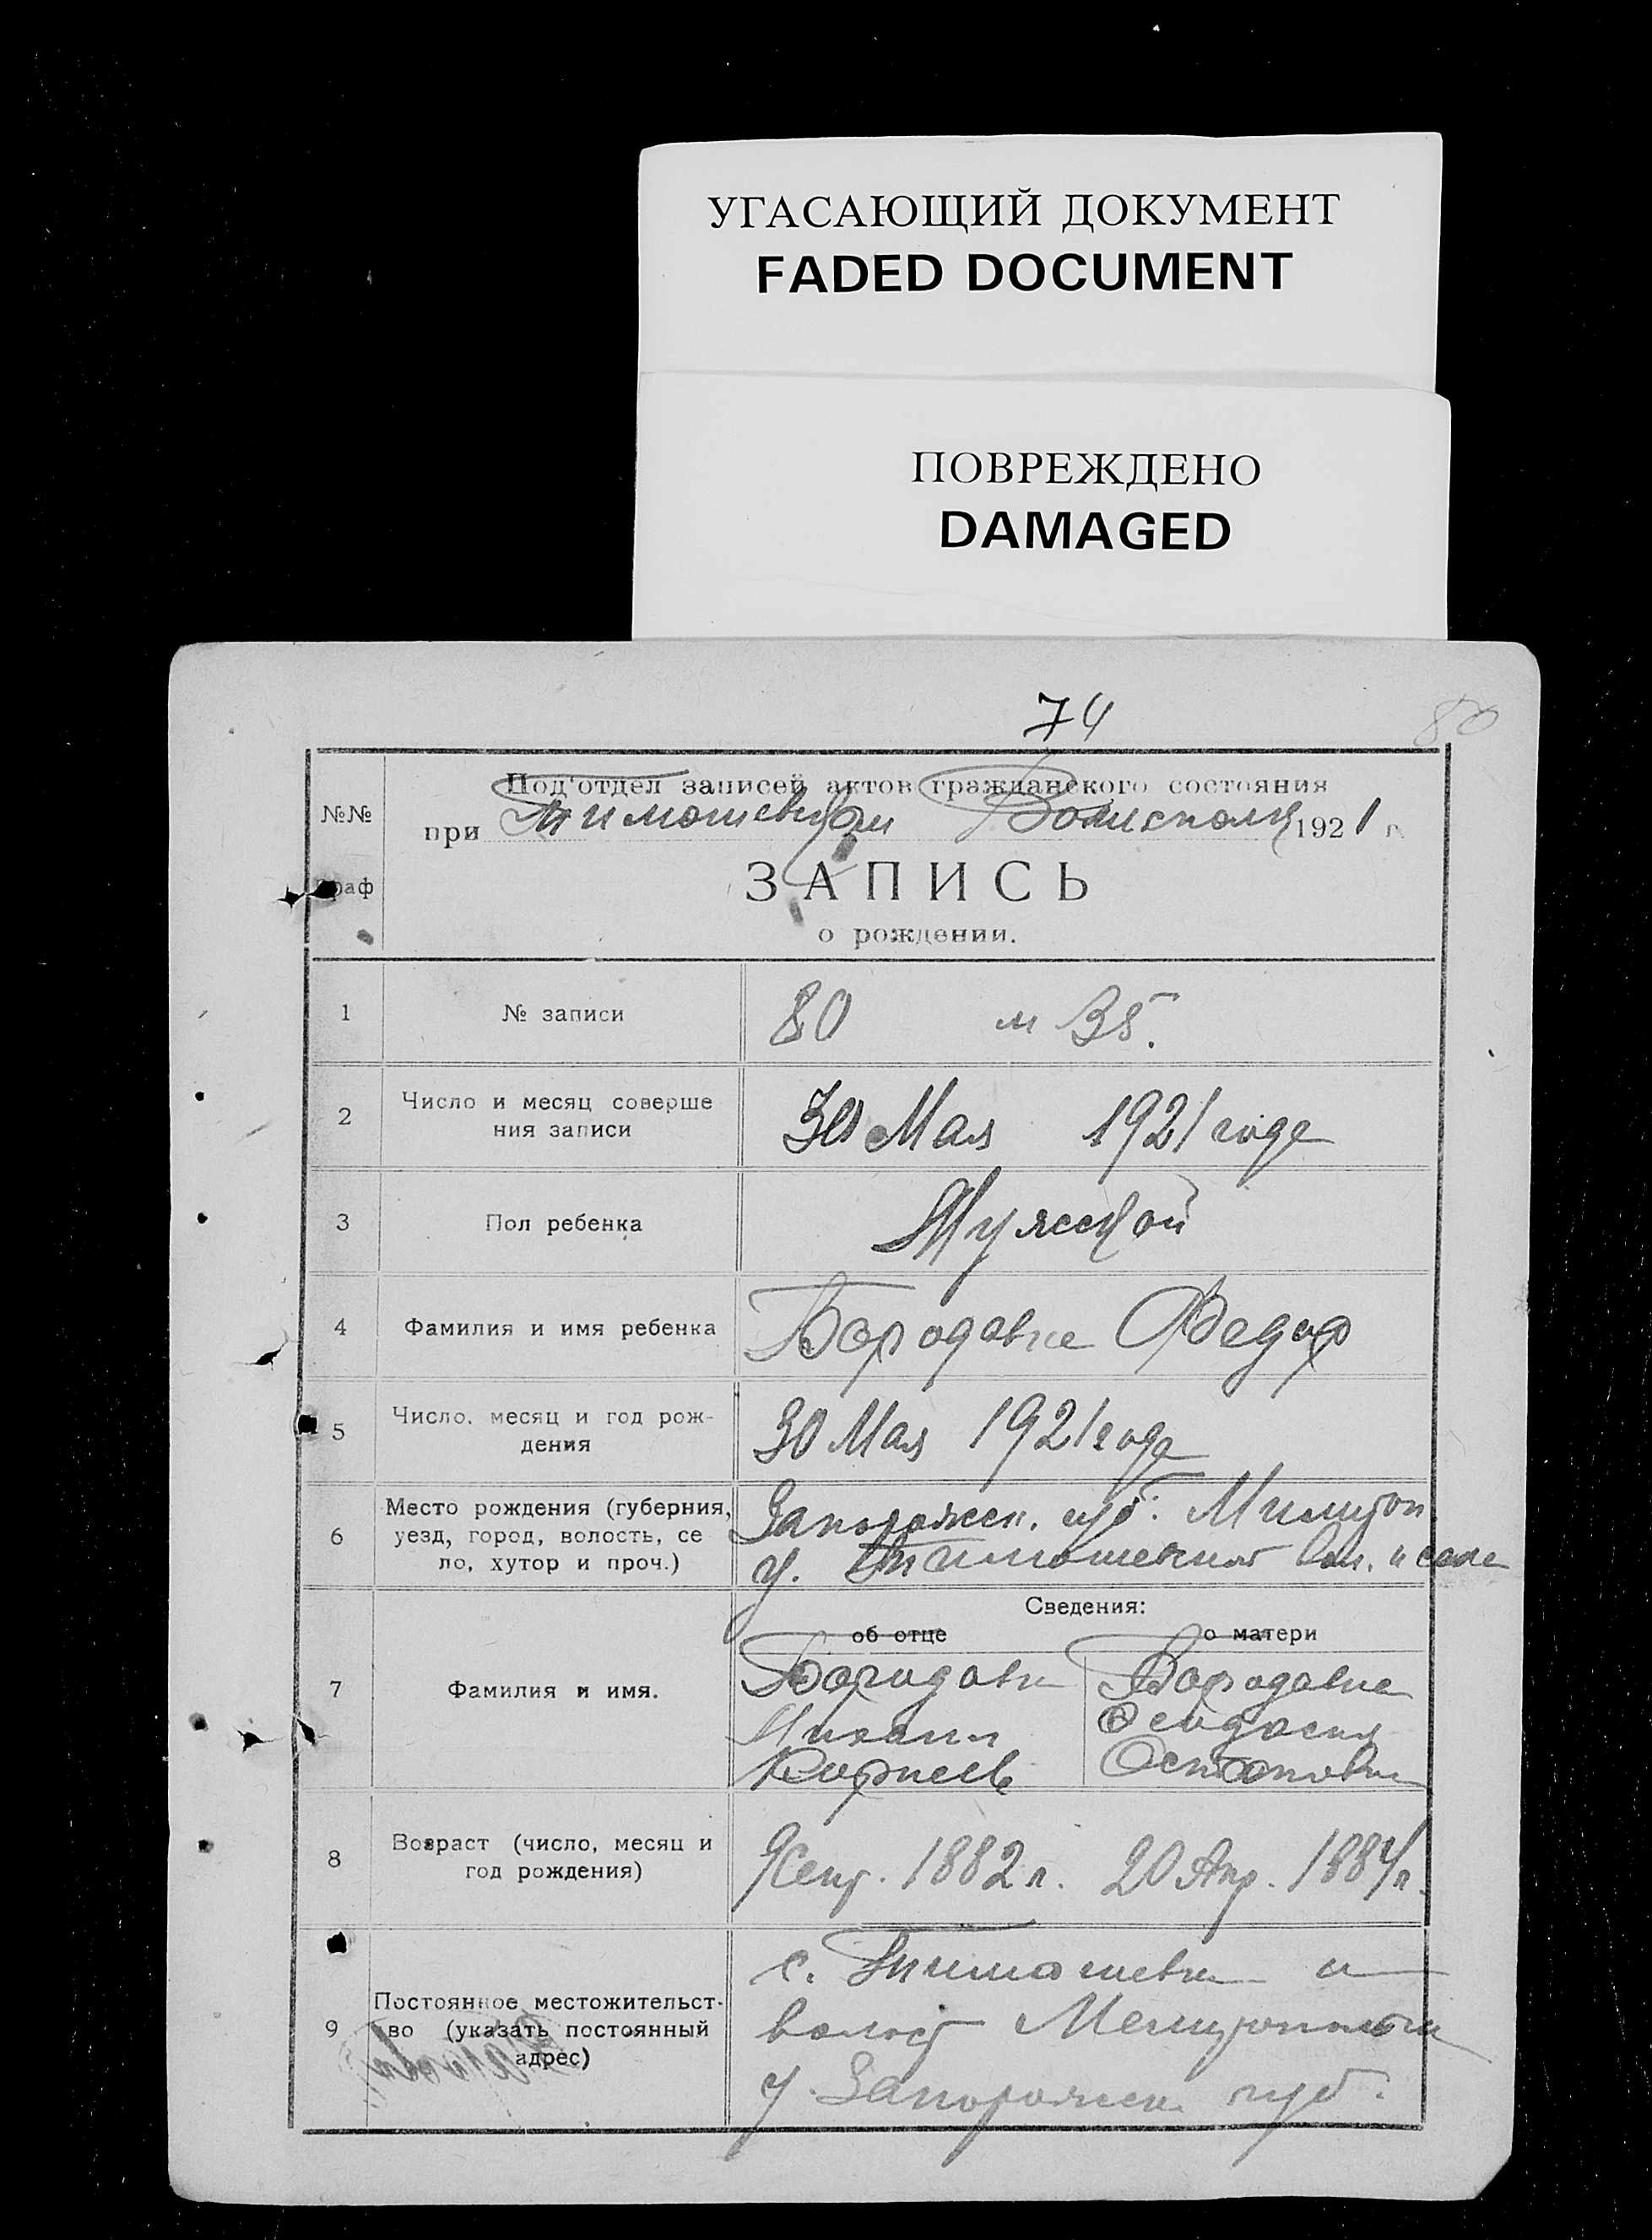 УГАСАЮЩИЙ ДОКУМЕНТ
FADED DOCUMENT
ПОВРЕЖДЕНО
DAMAGED
74
80
Под'отдел записей актов гражданского состояния
№№
при Тимошевском Волисполк 1921 г.
Граф
ЗАПИСЬ
о рождении.
1 № записи 80 м 35.
2 Число и месяц соверше
ния записи
30 Мая 1921 годе
3 Пол ребенка Мужской
4 Фамилия и имя ребенка Бородавке Федор
5 Число. месяц и год рож-
дения
30 Мая 1921 годе
6 Место рождения (губерния,
уезд, город, волость, се
ло, хутор и проч.)
Запорожск. губ. Мелитоп.
у. Тимошевкой вол. и селе
Сведения:
об отце о матери
7 Фамилия и имя.
Бородавк
Михаил
Корнеев
Бородавке
Феодосия
Остапов
8 Возраст (число, месяц и
год рождения)
9 Сент. 1882 г. 20 Апр. 1884 г.
9 Постоянное местожительст-
во (указать постоянный
адрес)
с. Тимошевке и
волост Мелитопольск
у. Запорожск губ.